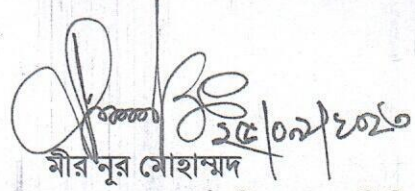 ২৫/০৯/২০২৩
মীর নূর মোহাম্মদ